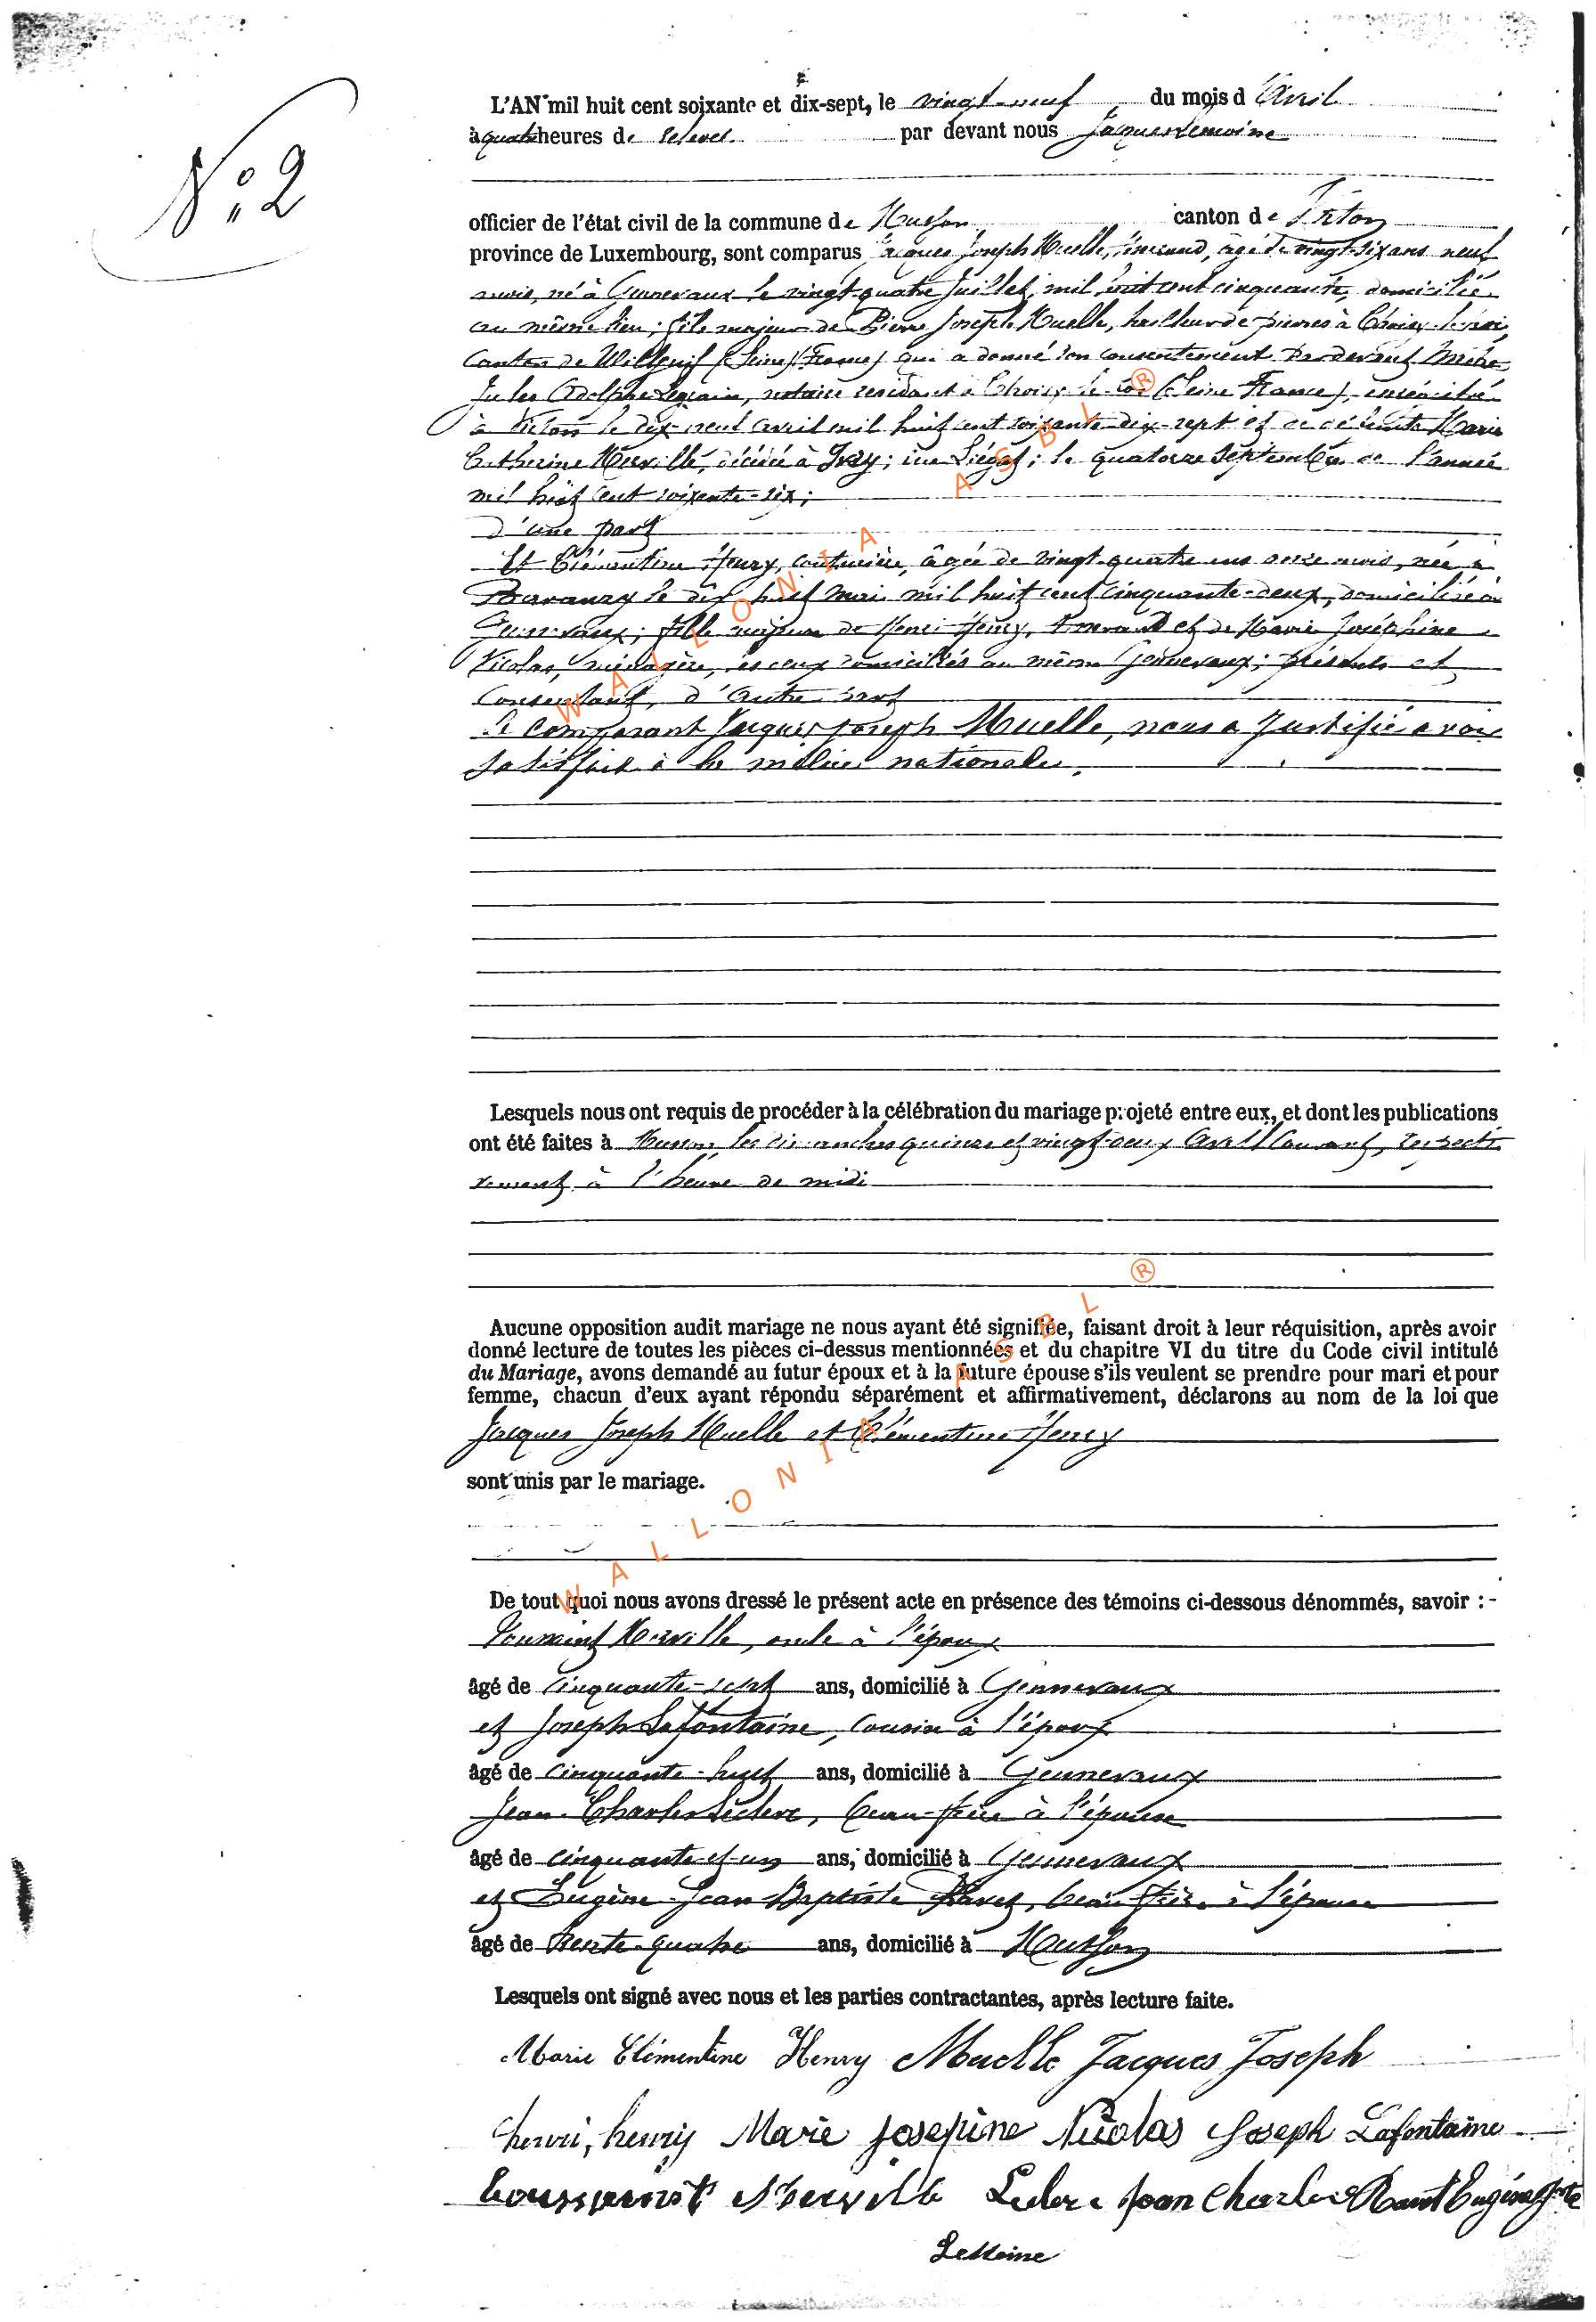 N° 2
L'AN mil huit cent soixante et dix-sept, le vingt-neuf du mois d'Avril
à quatre heures de relevée par devant nous Jacques Lemoine
officier de l'état civil de la commune de Musson canton de Virton
province de Luxembourg, sont comparus Jacques Joseph Muelle, émeraud, âgé de vingt-six ans neuf
mois, né à Gennevaux le vingt-quatre Juillet mil huit cent cinquante, domicilié
au même lieu; fils majeur de Pierre Joseph Muelle, tailleur de pierres à Choisy-le-roi,
Canton de Villejuif (Seine) (France) qui a donné son consentement par devant Maître
Jules Adolphe, notaire résidant à Choisy-le-roi (Seine France), enregistré
à le dix-neuf avril mil huit cent soixante-dix-sept et de défunte Marie
Catherine Merville, décédée à Ivry; rue Liégat; le quatorze Septembre de l'année
mil huit cent soixante-six;
d'une part
Et Clémentine Henry, couturière, âgée de vingt-quatre ans onze mois, née à
Baranzy le dix huit mai mil huit cent cinquante-deux, domiciliée à
Gennevaux; fille majeure de Henri Henry, et de Marie Joséphine
Nicolas, ménagère, domiciliés au même Gennevaux; présents et
consentants, d'autre part
Le comparant Jacques Joseph Muelle, nous a justifié avoir
satisfait à la milice nationale.
Lesquels nous ont requis de procéder à la célébration du mariage projeté entre eux, et dont les publications
ont été faites à Musson, les dimanches quinze et vingt-deux Avril Courant, respecti
vement à l'heure de midi
Aucune opposition audit mariage ne nous ayant été signifiée, faisant droit à leur réquisition, après avoir
donné lecture de toutes les pièces ci-dessus mentionnées et du chapitre VI du titre du Code civil intitulé
du Mariage, avons demandé au futur époux et à la future épouse s'ils veulent se prendre pour mari et pour
femme, chacun d'eux ayant répondu séparément et affirmativement, déclarons au nom de la loi que
Jacques Joseph Muelle et Clémentine Henry
sont unis par le mariage.
De tout quoi nous avons dressé le présent acte en présence des témoins ci-dessous dénommés, savoir : -
Toussaint Merville, oncle à l'époux
âgé de cinquante-sept ans, domicilié à Gennevaux
et Joseph Lafontaine, cousin à l'époux
âgé de cinquante-huit ans, domicilié à Gennevaux
Jean-Charles Leclerc, beau-frère à l'épouse
âgé de cinquante-et-un ans, domicilié à Gennevaux
et Eugène-Jean-Baptiste, beau-frère à l'épouse
âgé de trente-quatre ans, domicilié à Musson
Lesquels ont signé avec nous et les parties contractantes, après lecture faite.
Marie Clémentine Henry Muelle Jacques Joseph
henri, henry Marie Josepine Nicolas Joseph Lafontaine
toussaint Merville Leclerc Jean Charles Eugène
LeMoine
WALLONIA ASBL ®
WALLONIA ASBL ®